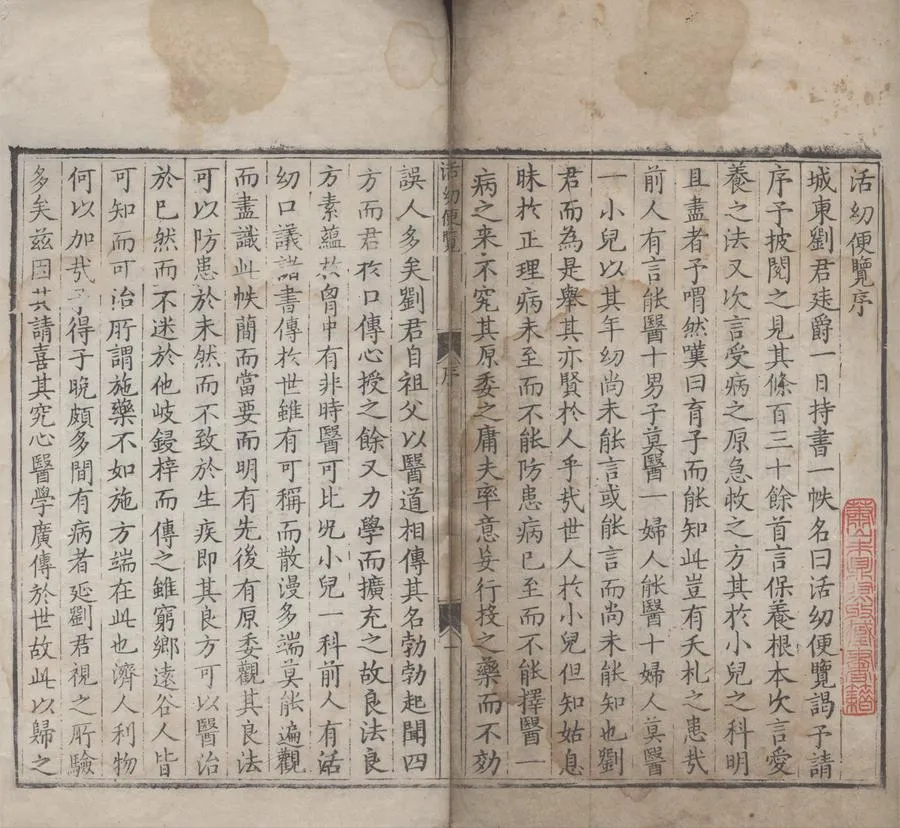 活幼便覽序
城東劉君廷爵一日持書一帙名曰活幼便覽謁予請
序予披閱之見其條百三十餘首言保養根本次言愛
養之法又次言受病之原急救之方其於小兒之科明
且盡者予喟然嘆曰育子而能知此豈有夭札之患哉
前人有言能醫十男子莫醫一婦人能醫十婦人莫醫
一小兒以其年幼尚未能言或能言而尚未能知也劉
君而為是舉其亦賢於人乎哉世人於小兒但知姑息
昧於正理病未至而不能防患病已至而不能擇醫一
病之来不究其原委之庸夫率意妄行投之藥而不効
活幼便覽
序
一
誤人多矣劉君自祖父以醫道相傳其名勃勃起聞四
方而君於口傳心授之餘又力學而擴充之故良法良
方素蘊於胷中有非時醫可比況小兒一科前人有活
幼口議諸書傳於世雖有可稱而散漫多端莫能遍觀
而盡識此帙簡而當要而明有先後有原委觀其良法
可以防患於未然而不致於生疾即其良方可以醫治
於已然而不迷於他岐鋟梓而傳之雖窮鄉遠谷人皆
可知而可治所謂施藥不如施方端在此也濟人利物
何以加哉予得子晚頗多間有病者延劉君視之所驗
多矣茲因其請喜其究心醫學廣傳於世故此以歸之